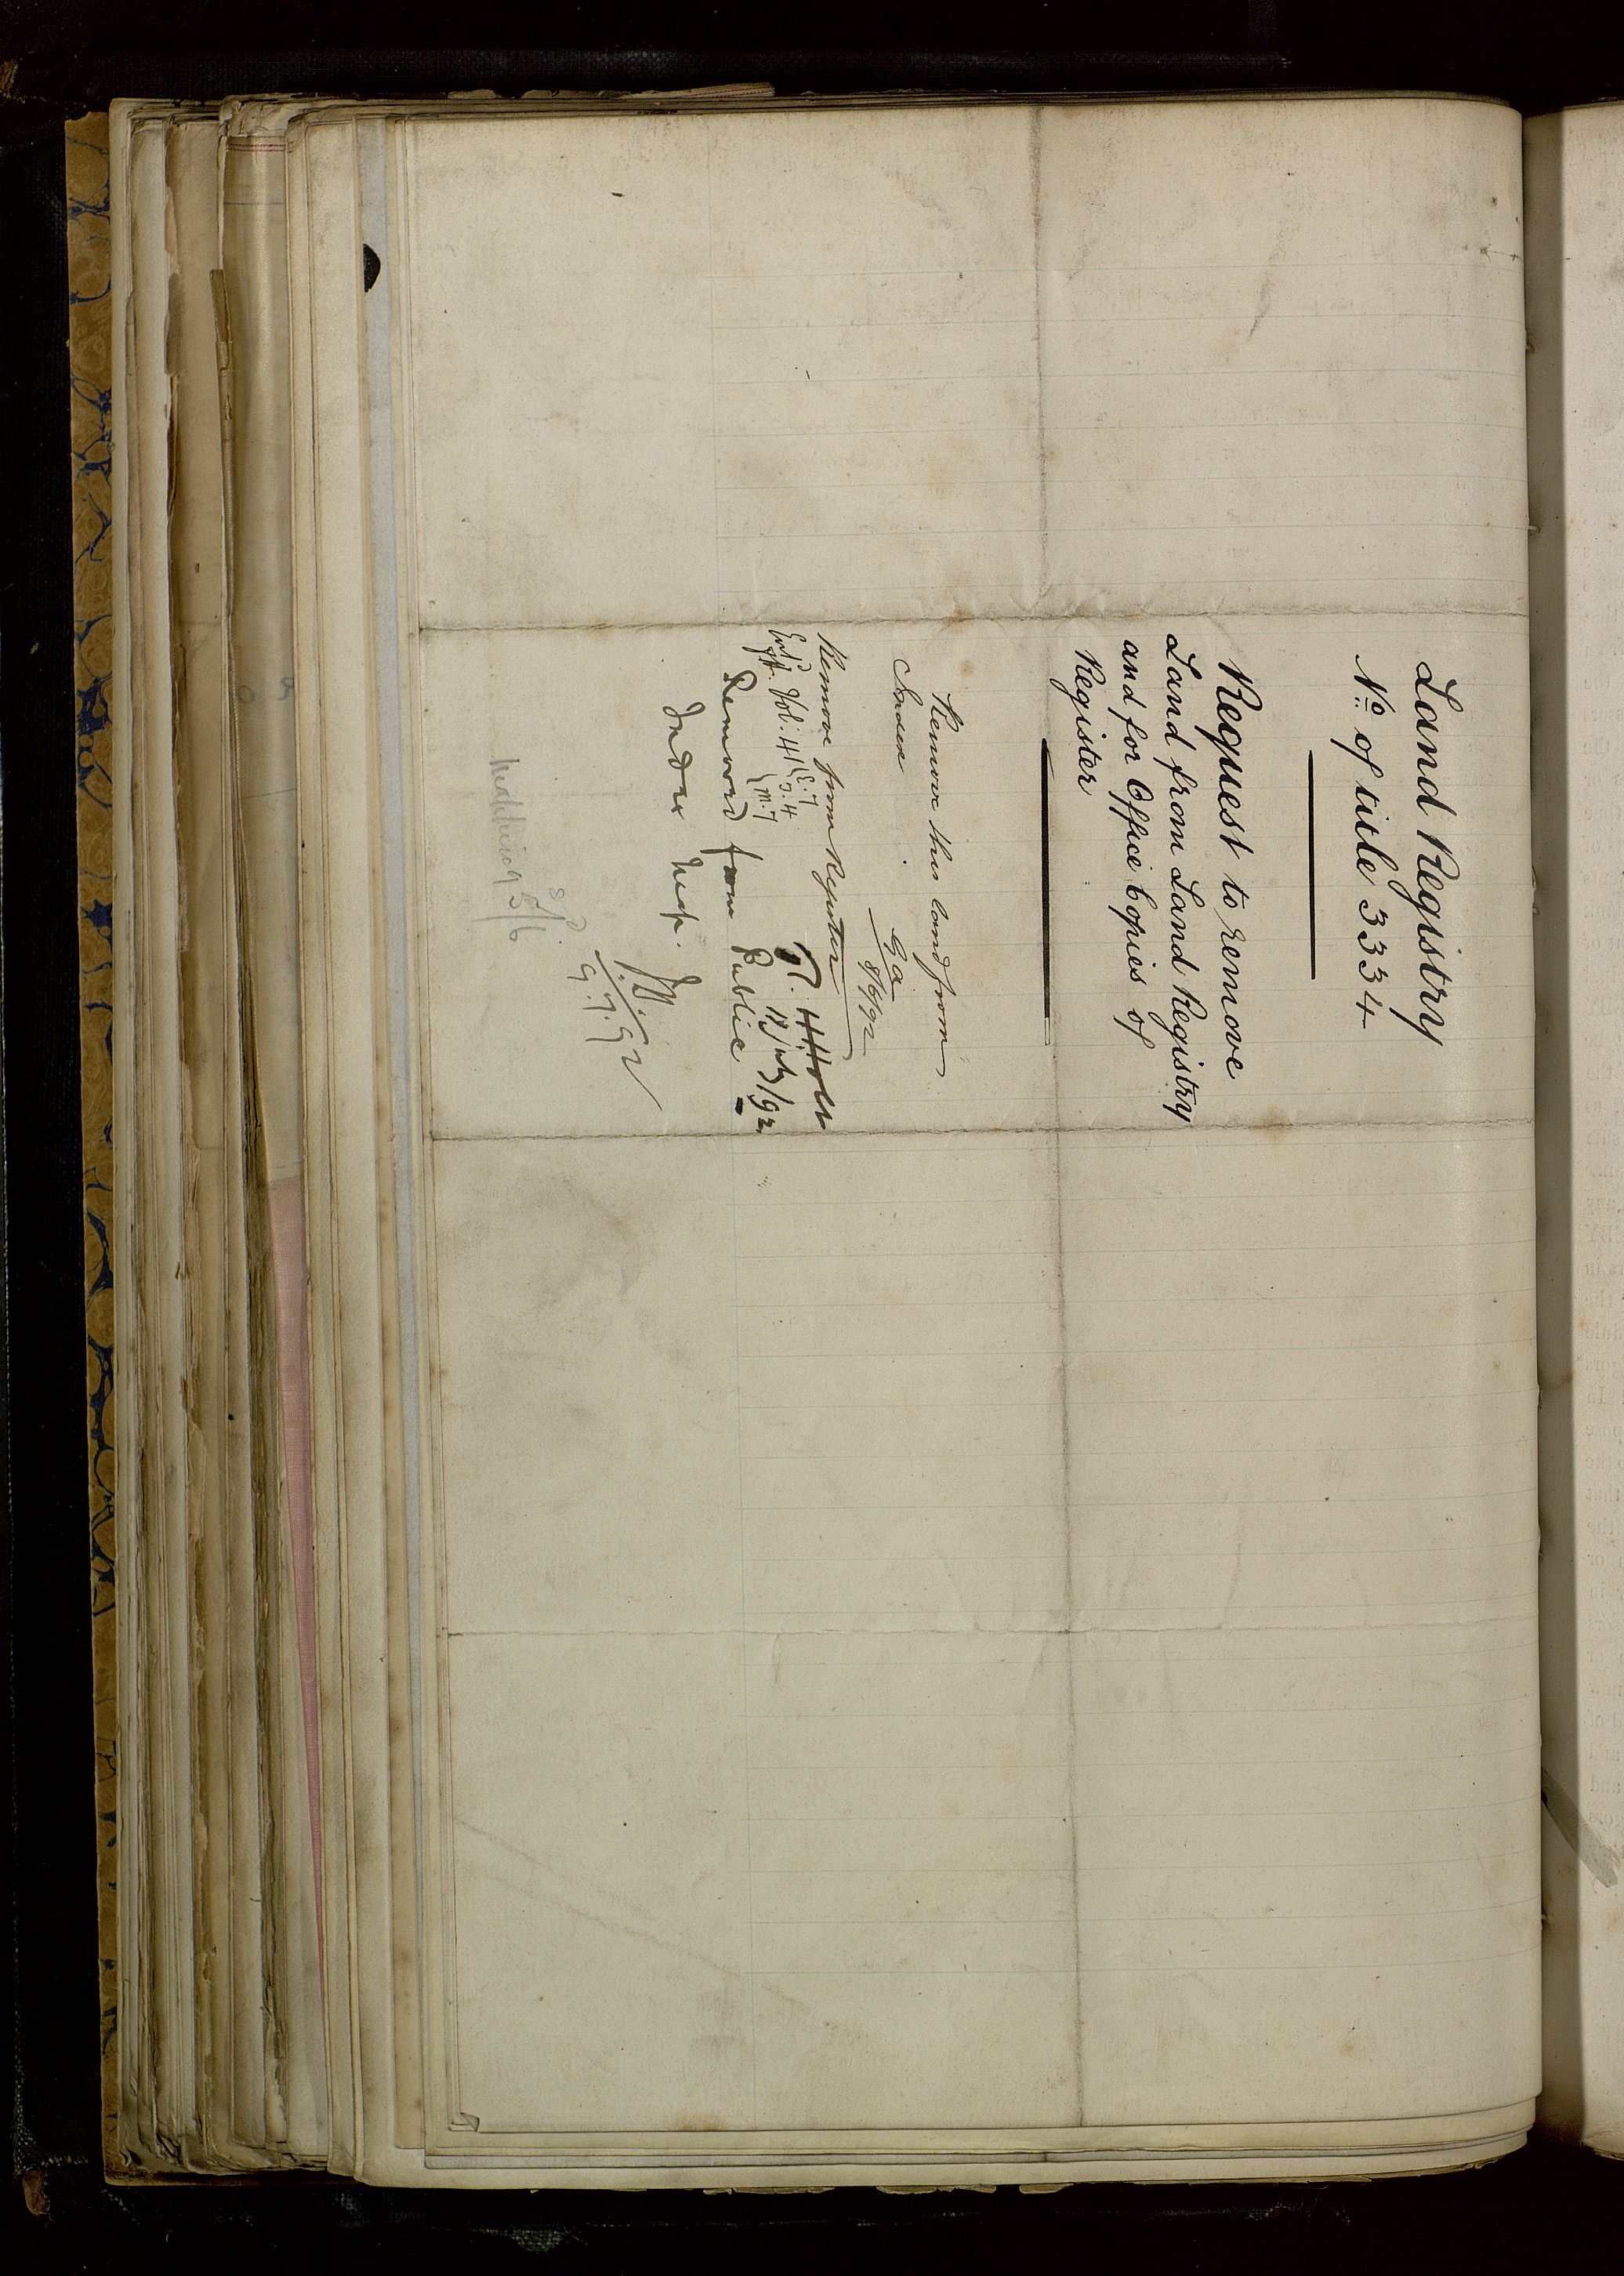 Land Registry
No of title 3334
Request to remove
Land from Land Registry
and for Office Copies of
Register
Remove this land from
Index
8/7/92
Remove from Register
Vol. 41
12 July/92
Removed from Public
Index Map.
9.7.92